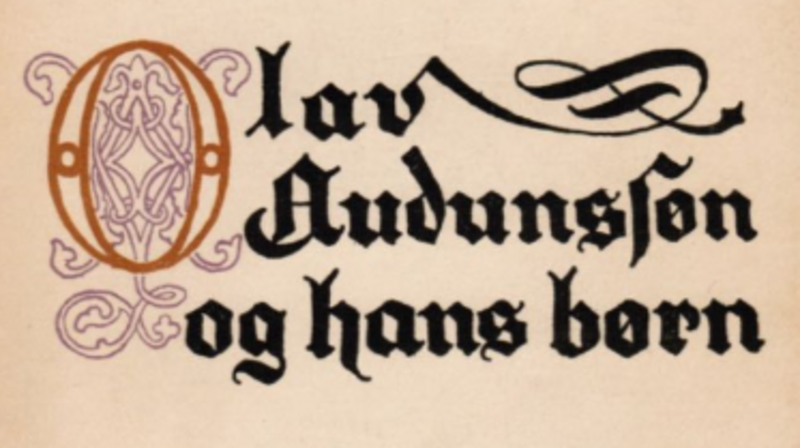 Olav
Audunsſøn
og hans børn